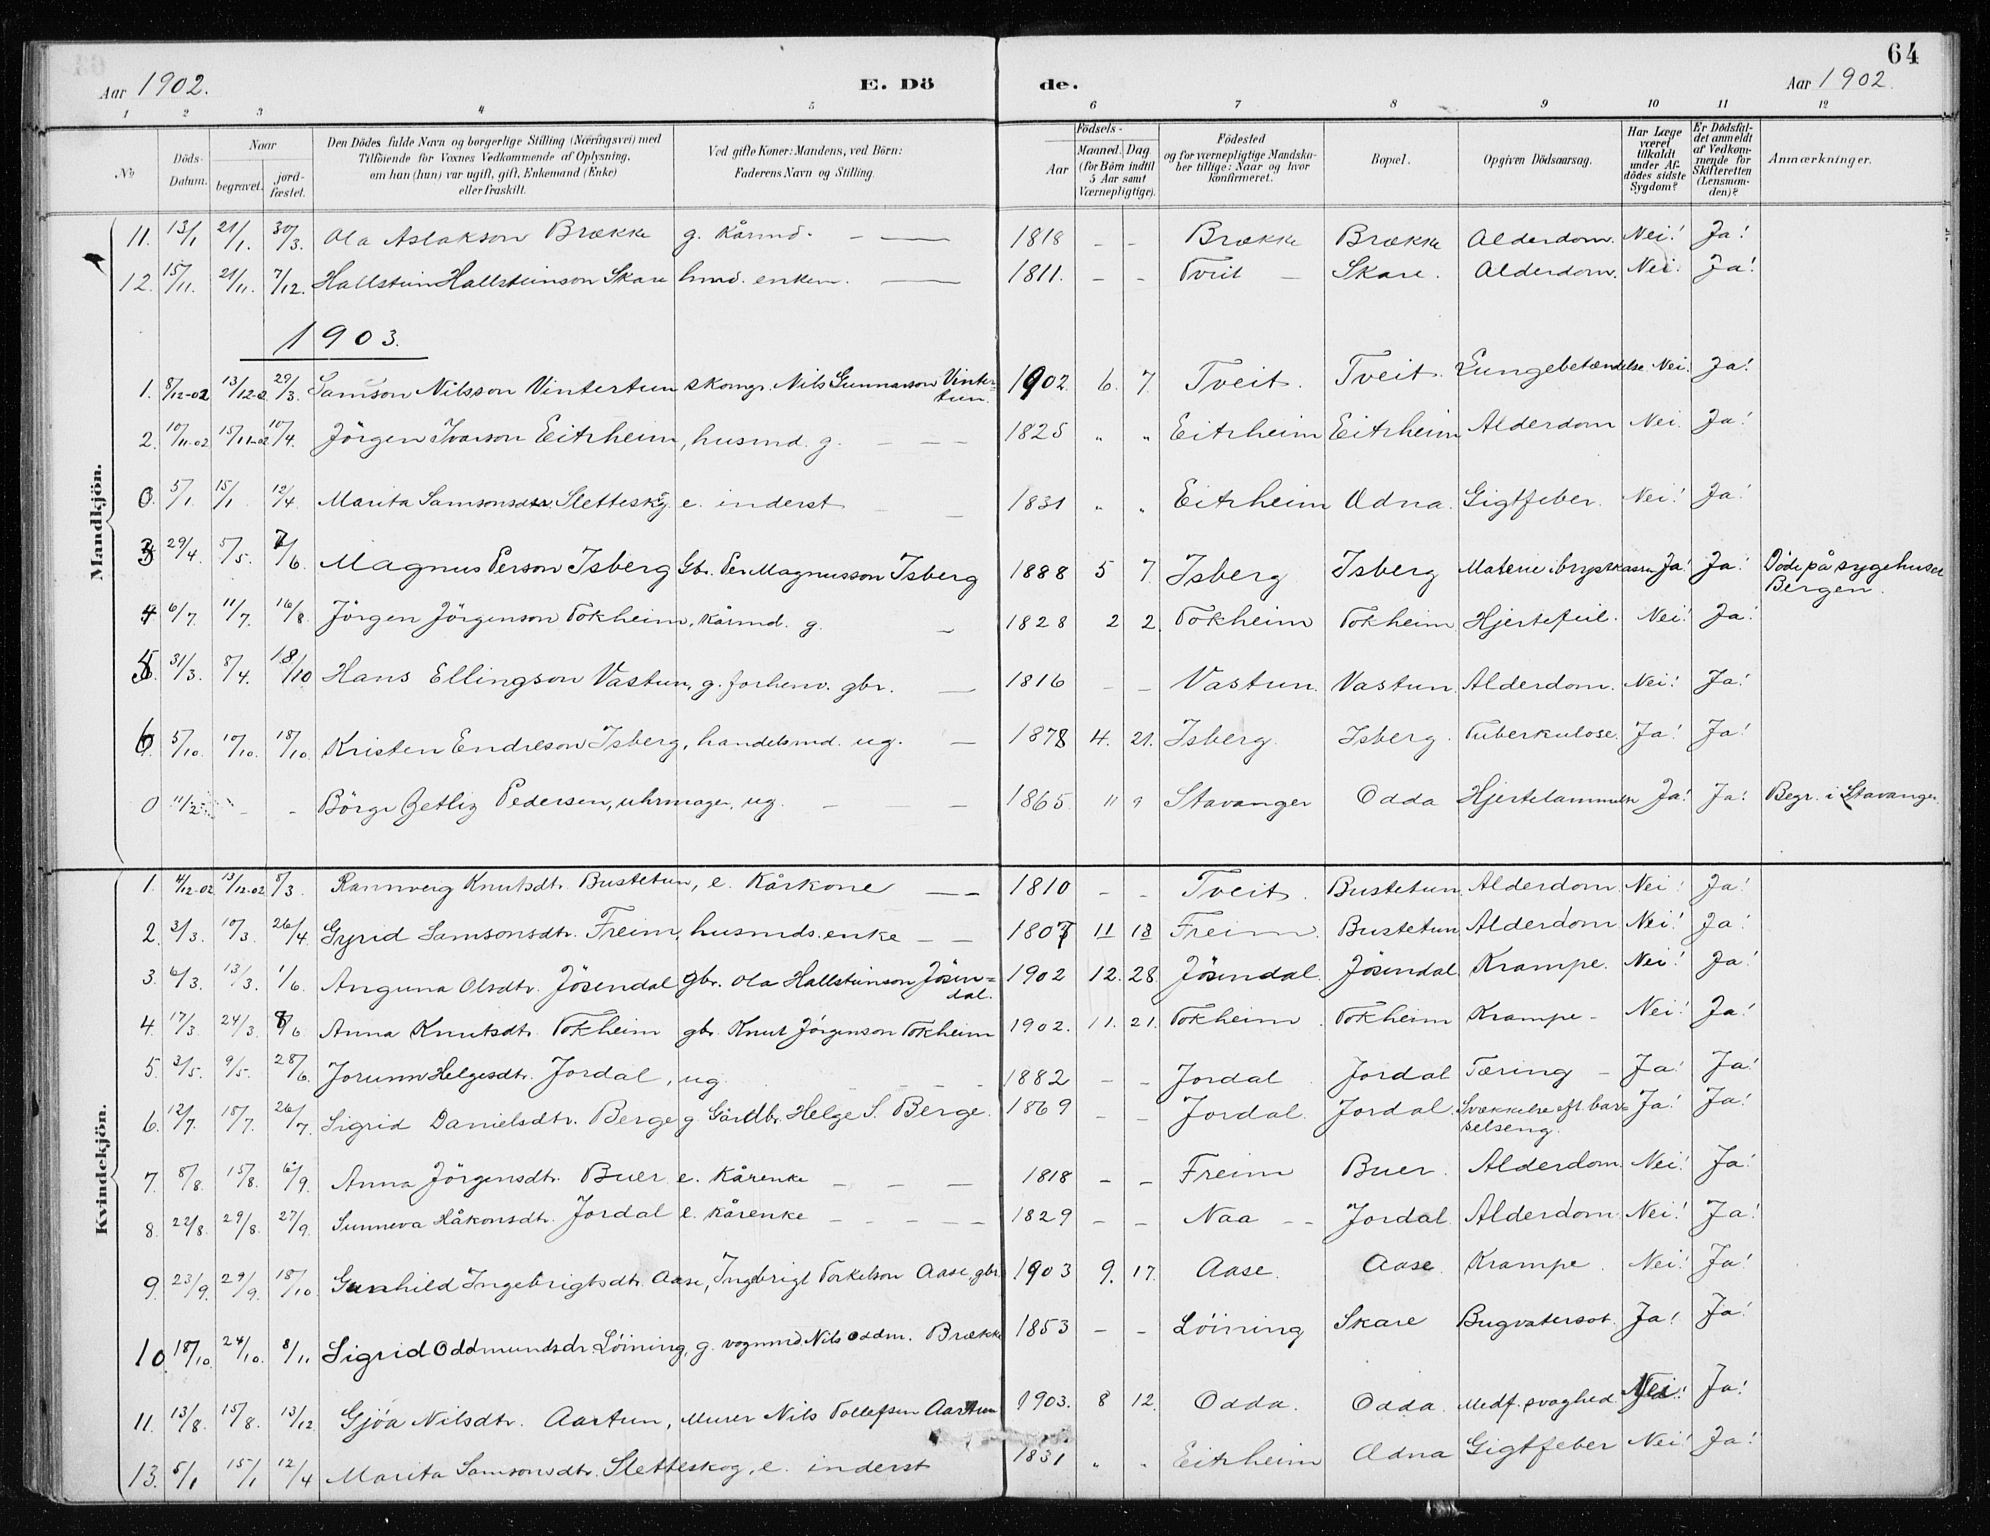 64
Aar 1902.
E. Dö
de.
Aar 1902.
1 2 3 4 5 6 7 8 9 10 11 12
No
Döds-Datum.
Naar
begravet.
jord-fæstet.
Den Dödes fulde Navn og borgerlige Stilling (Næringsvei) med
Tilföiende for Voxnes Vedkommende af Oplysning,
om han (hun) var ugift, gift, Enkemand (Enke)
eller fraskilt.
Ved gifte Koner: Mandens, ved Börn:
Faderens Navn og Stilling.
Födsels-
Aar
Maaned. Dag
(for Börn indtil
5 Aar samt
Værnepligtige).
Födested
og for værnepligtige Mandska-
ber tillige: Naar og hvor
konfirmeret.
Bopæl.
Opgiven Dödsaarsag.
Har Læge
været
tilkaldt
under Af-
dödes sidste
Sygdom?
Er Dödsfal-
det anmeldt
af Vedkom-
mende for
Skifteretten
(Lensman-
den)?
Anmærkninger.
Mandkjön.
11. 13/1 21/1. 30/3. Ola Aslakson Brække g. Kårmd. – — 1818 – – Brække Brække Alderdom. Nei! Ja!
12. 15/11. 21/11. 7/12. Hallstein Hallsteinson Skare hmd. enkem. — 1811. – – Tveit – Skare. Alderdom. Nei. Ja!
1903.
1. 8/12-02 13/12-02 29/3. Samson Nilsson Vintertun skomgr. Nils Gunnarson Vinter-
tun. 1902. 6. 7. Tveit. Tveit. Lungebetændelse Nei. Ja!
2. 10/11-02 15/11-02 10/4. Jörgen Ivarson Eitrheim, husmd. g. – – – 1825 „ „ Eitrheim Eitrheim Alderdom Nei. Ja!
0. 5/1. 15/1. 12/4. Marita Samsonsdtr. Sletteskg. e. inderst – 1831 „ „ Eitrheim Ædna. Gigtfeber. Nei! Ja!
3 29/4. 5/5. 7/6. Magnus Person Isberg Gbr. Per Magnusson Isberg 1888 5 7. Isberg Isberg Materie i brystkassen Ja! Ja! Döde på sygehuset
Bergen.
4 6/7. 11/7. 16/8. Jörgen Jörgenson Tokheim, kårmd. g. – 1828 2 2. Tokheim Tokheim Hjertefeil. Nei! Ja!
5. 31/3. 8/4. 18/10 Hans Ellingson Vastun, g. forhenv. gbr. – 1816 – – Vastun. Vastun. Alderdom. Nei! Ja!
6 5/10. 10/10. 18/10. Kristen Endreson Isberg, handelsmd. ug. – 1878 4. 21. Isberg. Isberg. Tuberkulose. Ja! Ja!
0 11/2 – – Börge Zetliz Pedersen, uhrmager, ug. – – 1865. 11 9 Stavanger Odda Hjertelammelse Ja! Ja! Begr. i Stavanger.
Kvindekjön.
1. 4/12-02 13/12-02 8/3. Rannveig Knutsdtr. Bustetun, e. Kårkone – – 1810 – – Tveit. Bustetun. Alderdom. Nei! Ja!
2. 3/3. 10/3. 26/4. Gyrid Samsonsdtr. Freim, husmds. enke – – 1807 11 18 Freim. Bustetun. Alderdom Nei! Ja!
3. 6/3. 13/3. 1/6. Anguna Olsdtr. Jösendal gbr. Ola Hallsteinson Jösen-
dal. 1902 12. 28. Jösendal. Jösendal. Krampe. Nei! Ja!
4. 17/3. 24/3. 8/6. Anna Knutsdtr. Tokheim gbr. Knut Jörgenson Tokheim 1902. 11. 21. Tokheim. Tokheim Krampe – Nei! Ja!
5. 3/5. 9/5. 28/6. Jorunn Helgesdtr. Jordal, ug. – – – 1882 – – Jordal Jordal Tæring – Ja! Ja!
6. 12/7. 18/7. 26/7. Sigrid Danielsdtr. Berge g. Gårdbr. Helge S. Berge. 1869 – – Jordal. Jordal. Svækkelse eft. bar-
selseng. Ja! Ja!
7. 8/8. 15/8. 6/9. Anna Jörgensdtr. Buer e. Kårenke – – – 1818 – – Freim Buer. Alderdom. Nei! Ja!
8. 22/8. 29/8. 27/9. Sunneva Håkonsdtr. Jordal e. Kårenke – – – – 1829 – – Naa – – Jordal. Alderdom. Nei! Ja!
9. 23/9. 29/9. 18/10. Gunhild Ingebrigtsdtr. Aase, Ingebrigt Torkelson Aase, gbr. 1903 9. 17. Aase. Aase. Krampe. Nei! Ja!
10. 18/10. 24/10. 8/11 Sigrid Oddmundsdr. Löining, g. vognmd. Nils Oddm. Brække 1853 – – Löining Skare Bugvatersot. Ja! Ja!
11. 13/8. 15/8. 13/12. Gjöa Nilsdtr. Aartun, Murer Nils Tollefsen Aartun 1903. 8 12. Odda. Odda. Medf. svaghed. Nei! Ja!
13. 5/1 15/1 12/4 Marita Samsonsdtr. Sletteskog, e. inderst 1831 „ „ Eitrheim Ædna Gigtfeber Nei! Ja!